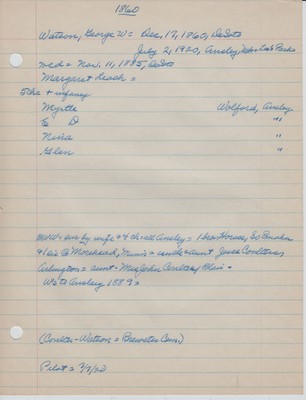 1860
Watson, George W = Dec. 17, 1860, DeSoto
July 2, 1920, Ansley, Nebr
wed = Nov. 11, 1885, DeSoto
Margaret Leach =
5 chs + infancy
Myrtle Wolford, Ansley
E D "
Nina "
Glen "
sur by wife + 4 ch = all Ansley = 1 bro Horace, So
+ 1 sis Morehead, = uncle + aunt Jesse Coulters
Arlington = aunt = Mrs John Coulter, Blair =
W to Ansley 1889 =
(Coulter-Watson = Brewster Cem.)
Pilot = 7/7/20